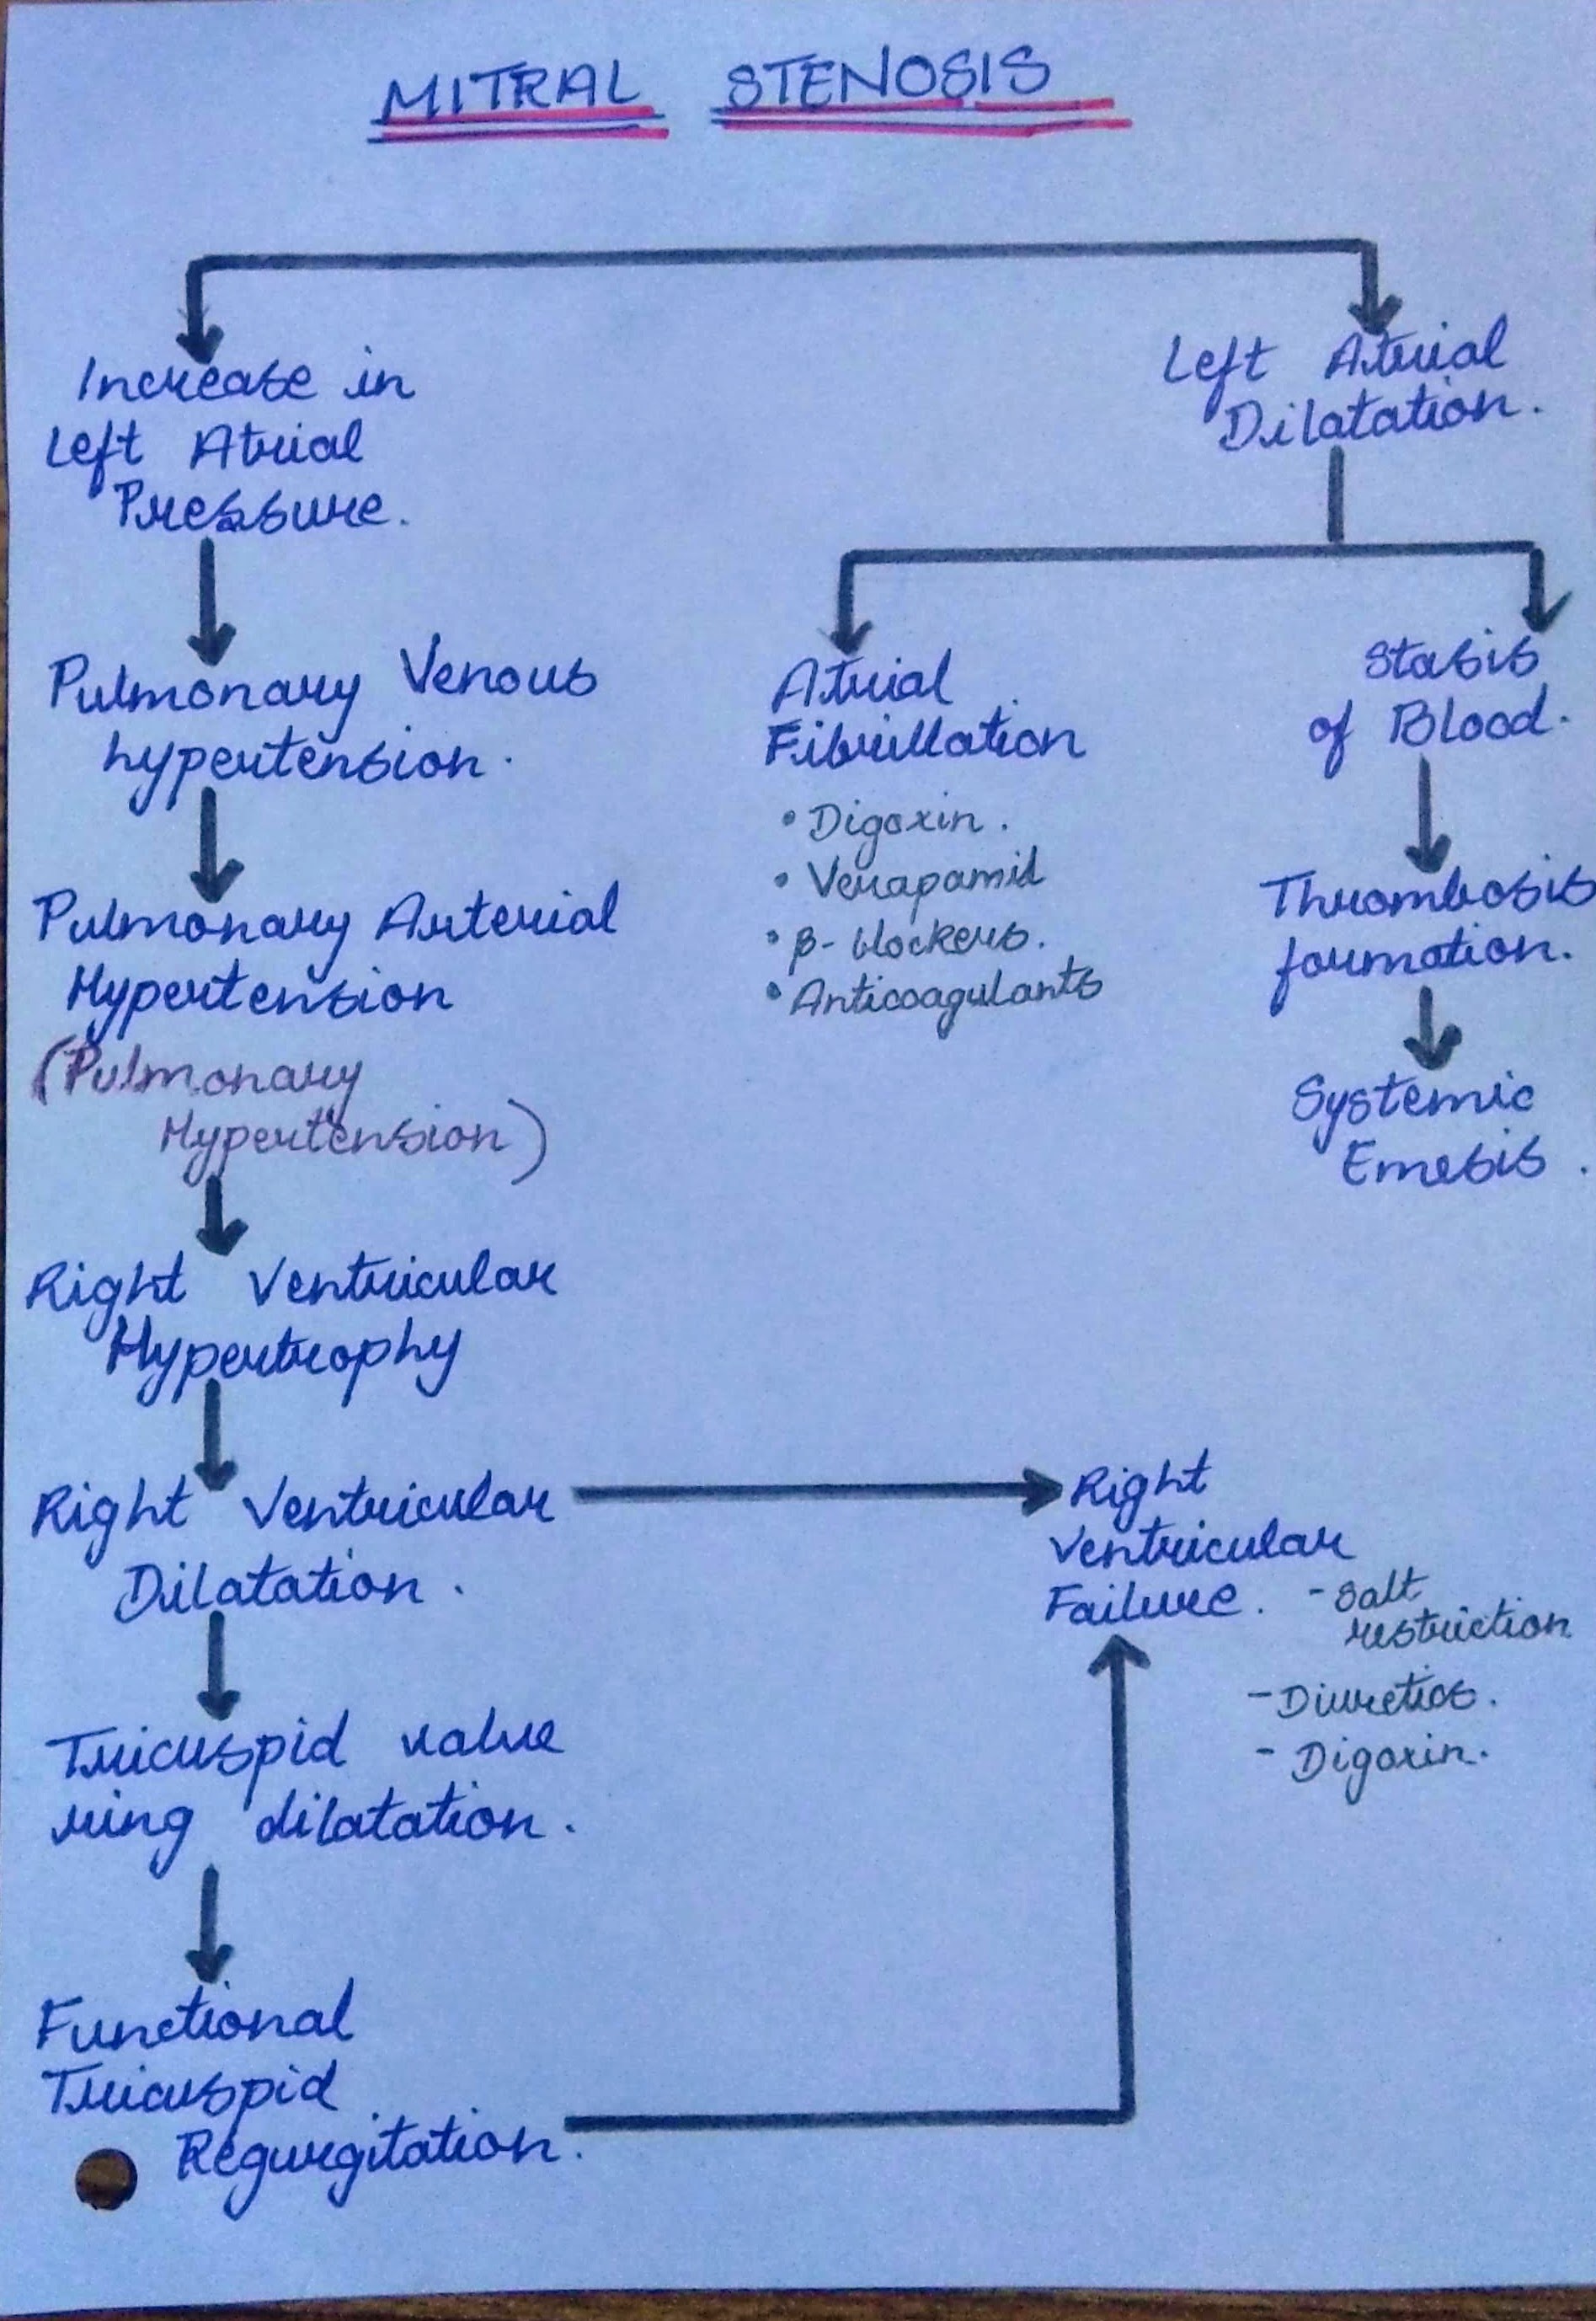 MITRAL STENOSIS
Increase in
Left Atrial
Pressure.
Pulmonary Venous
hypertension.
Pulmonary Arterial
Hypertension
(Pulmonary
Hypertension)
Right Ventricular
Hypertrophy
Right Ventricular
Dilatation.
Tricuspid valve
ring dilatation.
Functional
Tricuspid
Regurgitation.
Left Atrial
Dilatation.
Atrial
Fibrillation
• Digoxin.
• Verapamil
• β-blockers.
• Anticoagulants
Stasis
of Blood.
Thrombosis
formation.
Systemic
Emesis.
Right
Ventricular
Failure. - Salt
restriction
- Diuretics.
- Digoxin.